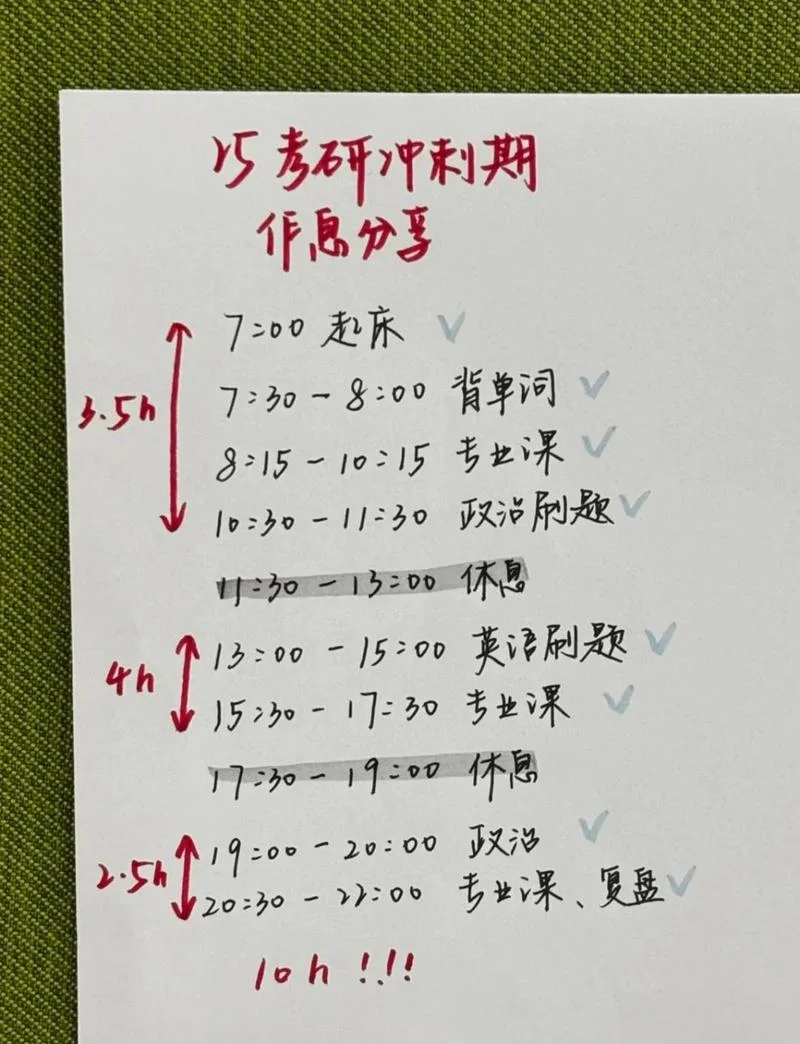 25考研冲刺期
作息分享
7:00 起床
7:30 - 8:00 背单词
3.5h
8:15 - 10:15 专业课
10:30 - 11:30 政治刷题
11:30 - 13:00 休息
13:00 - 15:00 英语刷题
4h
15:30 - 17:30 专业课
17:30 - 19:00 休息
19:00 - 20:00 政治
2.5h
20:30 - 22:00 专业课、复盘
10h!!!